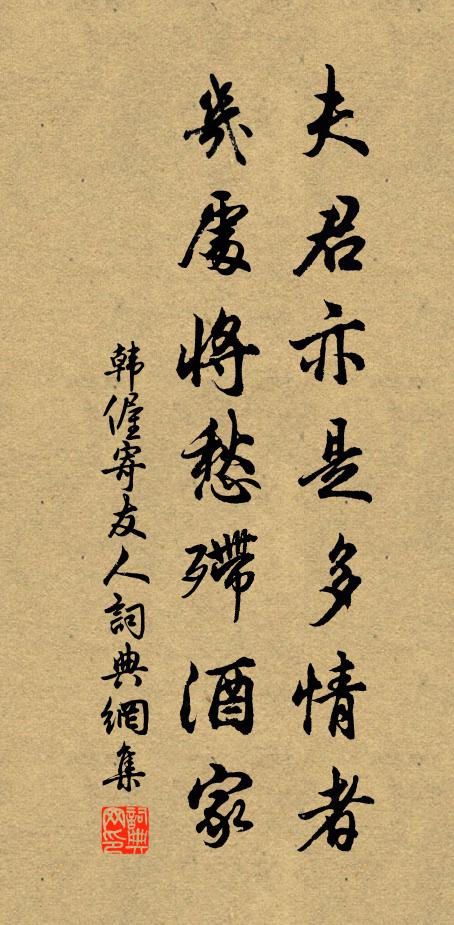 夫君亦是多情者
幾處將愁殢酒家
韩偓寄友人詞典網集
詞典网印